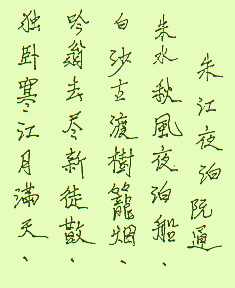 朱江夜泊 阮通
朱水秋風夜泊船、
白沙古渡樹籠烟、
吟翁去尽新徒散、
独卧寒江月滿天、